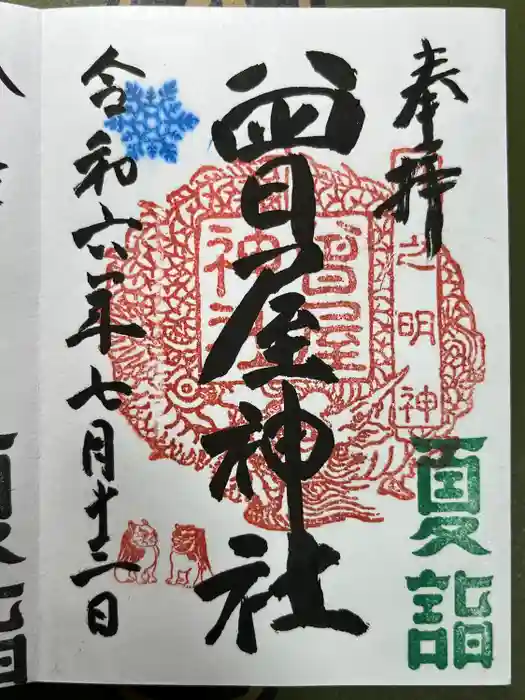 奉拝
之明神
夏詣
曽屋神社
曽屋
神社
令和六年七月十二日
夏詣